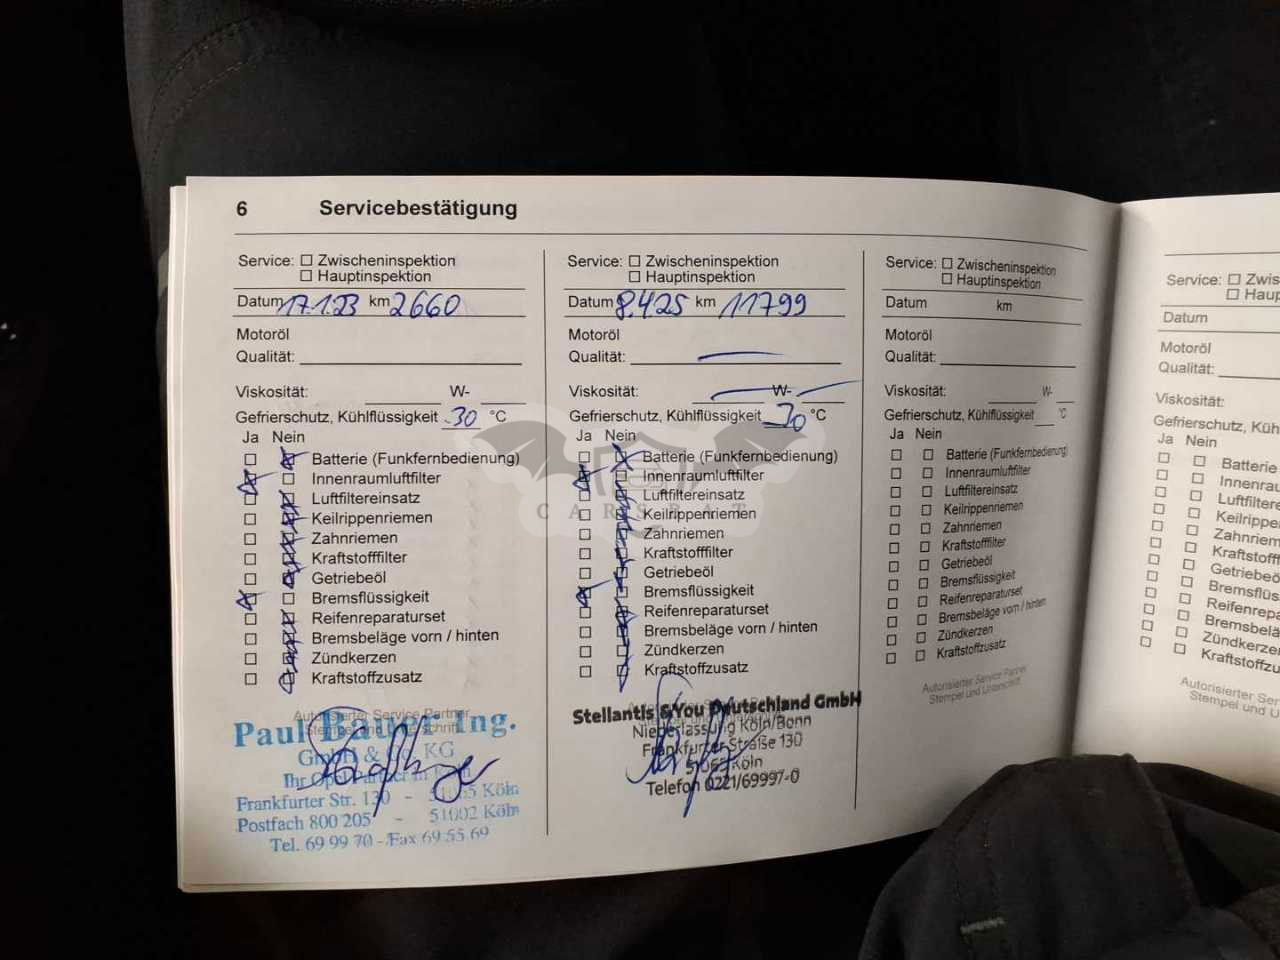 6 Servicebestätigung
Service: ☐ Zwischeninspektion
☐ Hauptinspektion
Datum 17.1.23 km 2660
Motoröl
Qualität:
Viskosität: W-
Gefrierschutz, Kühlflüssigkeit -30 °C
Ja Nein
Batterie (Funkfernbedienung)
Innenraumluftfilter
Luftfiltereinsatz
Keilrippenriemen
Zahnriemen
Kraftstofffilter
Getriebeöl
Bremsflüssigkeit
Reifenreparaturset
Bremsbeläge vorn / hinten
Zündkerzen
Kraftstoffzusatz
Autorisierter Service Partner
Paul Bauer Ing.
GmbH & Co. KG
Ihr Opel Partner in Köln
Frankfurter Str. 130 - 51065 Köln
Postfach 800 205 - 51002 Köln
Tel. 69 99 70 - Fax 69 55 69
Service: ☐ Zwischeninspektion
☐ Hauptinspektion
Datum 8.4.25 km 11799
Motoröl
Qualität:
Viskosität: W-
Gefrierschutz, Kühlflüssigkeit 30 °C
Ja Nein
Batterie (Funkfernbedienung)
Innenraumluftfilter
Luftfiltereinsatz
Keilrippenriemen
Zahnriemen
Kraftstofffilter
Getriebeöl
Bremsflüssigkeit
Reifenreparaturset
Bremsbeläge vorn / hinten
Zündkerzen
Kraftstoffzusatz
Stellantis &You Deutschland GmbH
Niederlassung Köln/Bonn
Frankfurter Straße 130
51065 Köln
Telefon 0221/69997-0
Service: ☐ Zwischeninspektion
☐ Hauptinspektion
Datum km
Motoröl
Qualität:
Viskosität: W-
Gefrierschutz, Kühlflüssigkeit °C
Ja Nein
Batterie (Funkfernbedienung)
Innenraumluftfilter
Luftfiltereinsatz
Keilrippenriemen
Zahnriemen
Kraftstofffilter
Getriebeöl
Bremsflüssigkeit
Reifenreparaturset
Bremsbeläge vorn / hinten
Zündkerzen
Kraftstoffzusatz
Autorisierter Service Partner
Stempel und Unterschrift
Service: ☐ Zwis
☐ Haup
Datum
Motoröl
Qualität:
Viskosität:
Gefrierschutz, Küh
Ja Nein
Batterie
Innenrau
Luftfilte
Keilripp
Zahnriem
Kraftstof
Getriebeö
Bremsflüs
Reifenrepa
Bremsbelä
Zündkerze
Kraftstoffzu
Autorisierter Ser
Stempel und U
CARSBAT